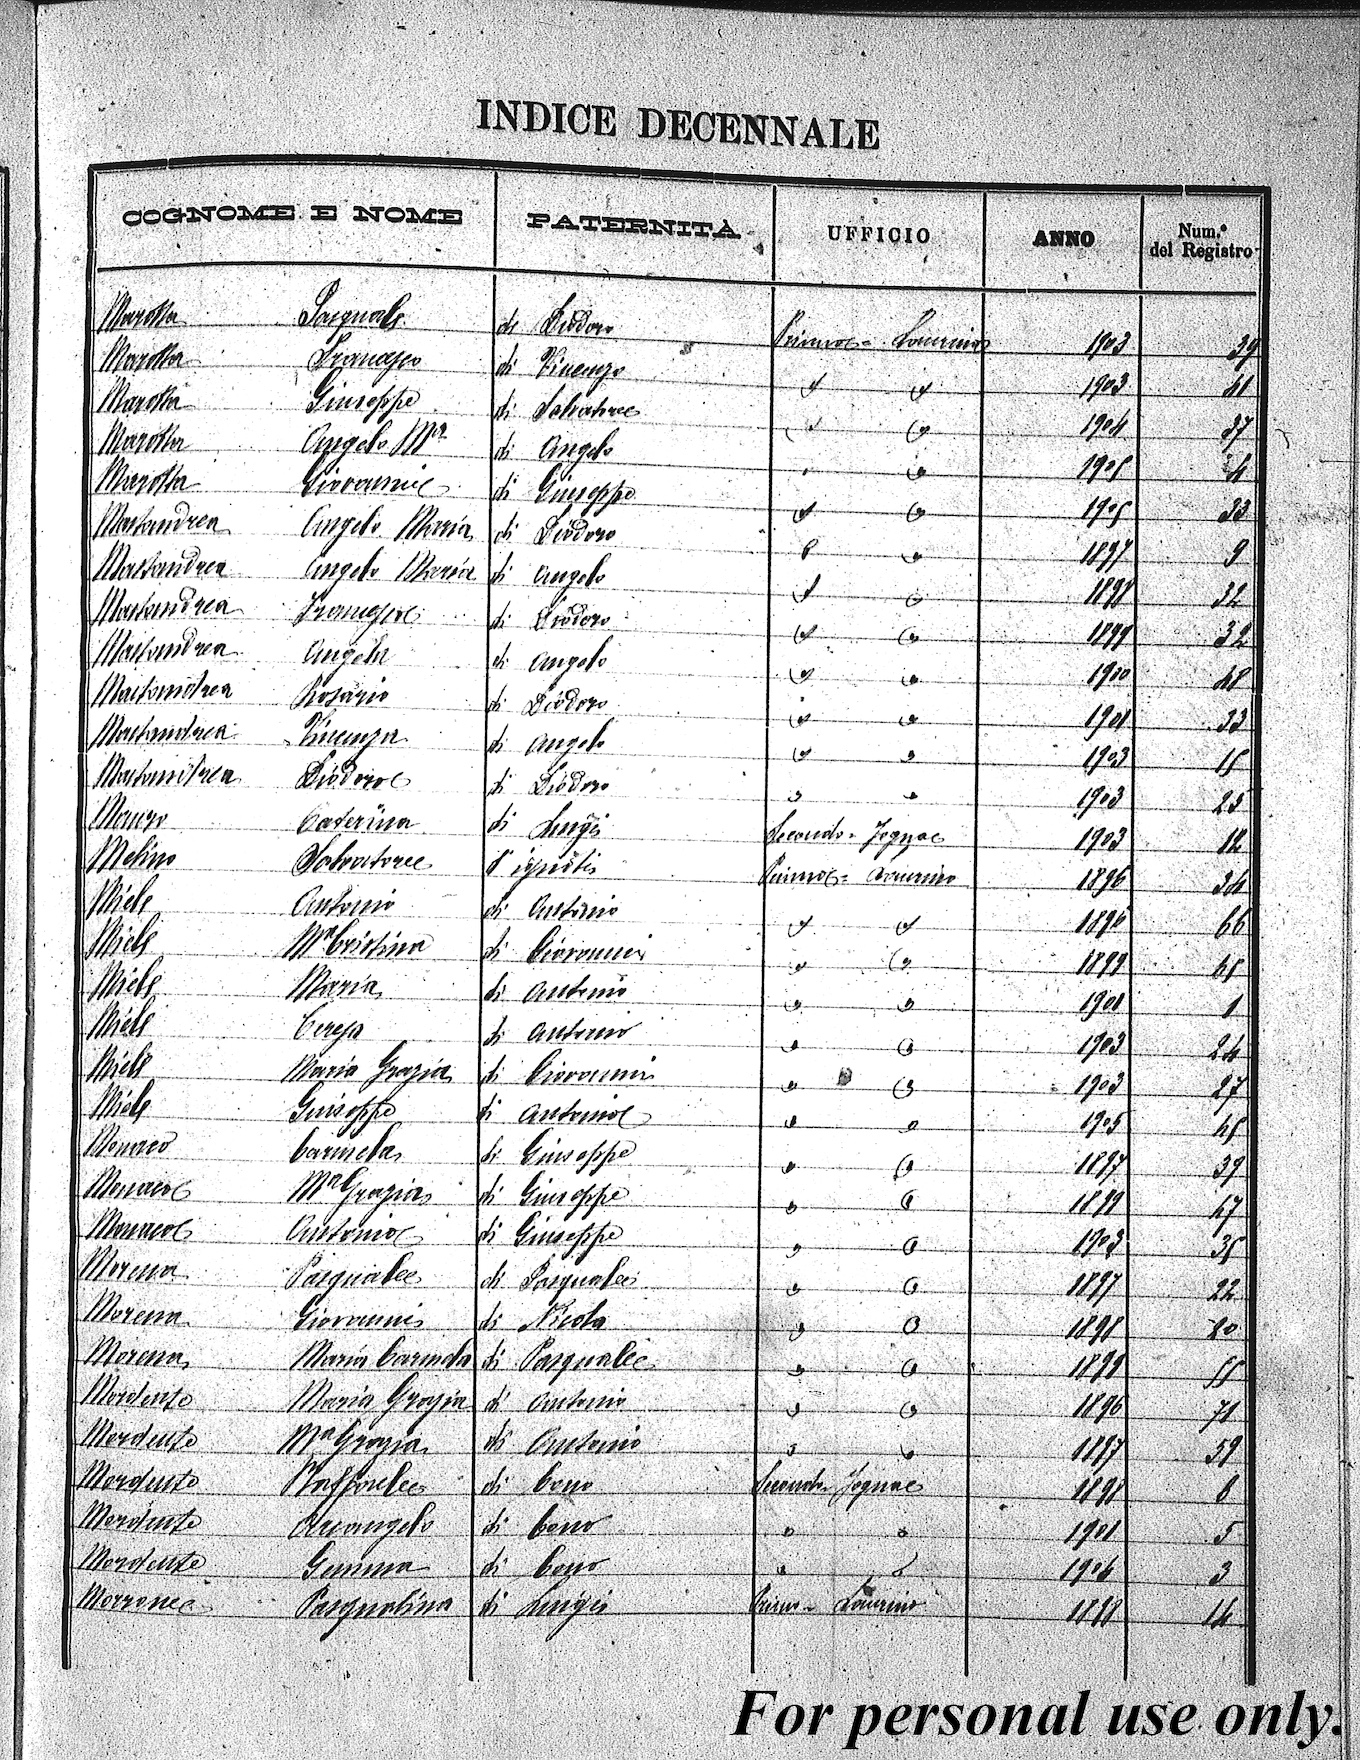 INDICE DECENNALE
COGNOME E NOME PATERNITÀ UFFICIO ANNO Num.º del Registro
Marotta Pasquale di Diodoro Primo - Laurino 1903 39
Marotta Francesco di Vincenzo " " 1903 41
Marotta Giuseppe di Salvatore " " 1904 37
Marotta Angelo Mª di Angelo " " 1905 4
Marotta Giovanni di Giuseppe " " 1905 33
Mastandrea Angelo Maria di Diodoro " " 1897 9
Mastandrea Angelo Maria di Angelo " " 1898 32
Mastandrea Francesco di Diodoro " " 1899 32
Mastandrea Angela di Angelo " " 1900 48
Mastandrea Rosario di Diodoro " " 1901 33
Mastandrea Vincenza di Angelo " " 1903 15
Mastandrea Diodoro di Diodoro " " 1903 25
Mauro Caterina di Luigi Secondo - Fogna 1903 12
Melino Salvatore d'ignoti Primo - Laurino 1896 34
Miele Antonio di Antonio " " 1896 66
Miele Mª Cristina di Giovanni " " 1899 45
Miele Maria di Antonio " " 1901 1
Miele Teresa di Antonio " " 1903 24
Miele Maria Grazia di Giovanni " " 1903 27
Miele Giuseppe di Antonio " " 1905 45
Monaco Carmela di Giuseppe " " 1897 39
Monaco Mª Grazia di Giuseppe " " 1899 47
Monaco Antonio di Giuseppe " " 1903 35
Morena Pasquale di Pasquale " " 1897 22
Morena Giovanni di Nicola " " 1898 20
Morena Maria Carmela di Pasquale " " 1899 55
Mordente Maria Grazia di Antonio " " 1896 71
Mordente Mª Grazia di Antonio " " 1897 59
Mordente Raffaele di Cono Secondo Fogna 1898 6
Mordente Arcangelo di Cono " " 1901 5
Mordente Gemma di Cono " " 1904 3
Morrone Pasqualina di Luigi Primo - Laurino 1898 14
For personal use only.